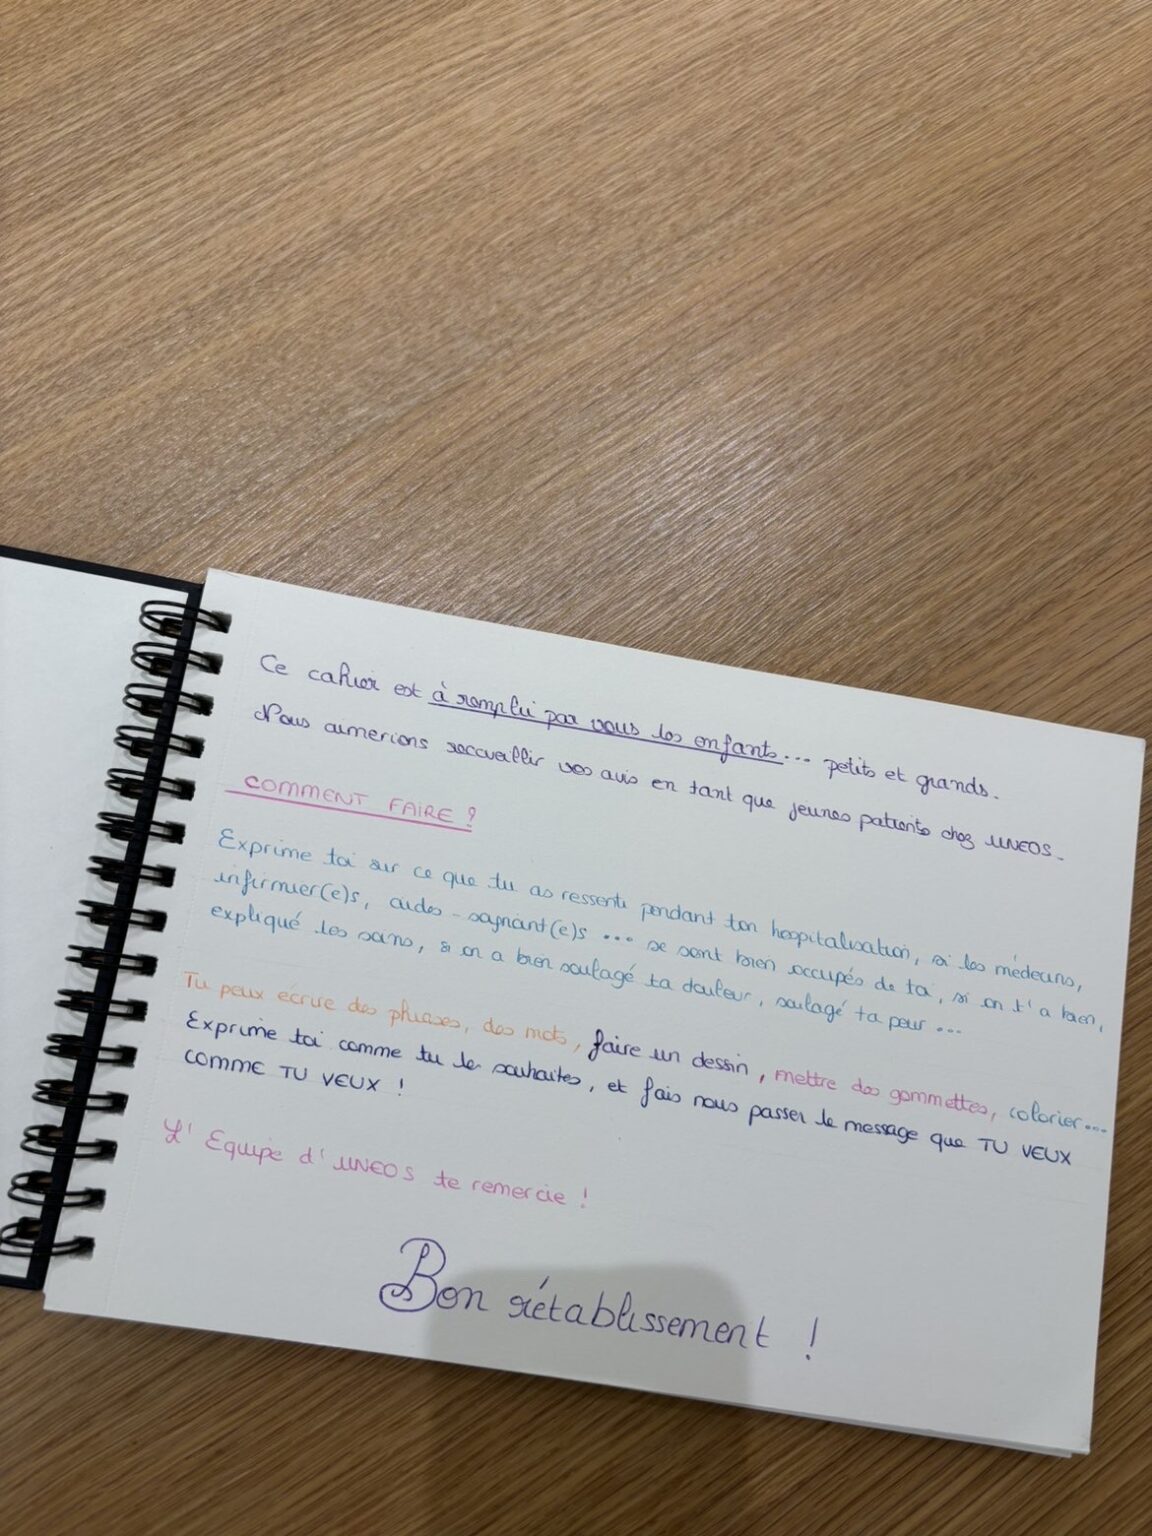 Ce cahier est à rempli par vous les enfants... petits et grands.
Nous aimerions reccueillir vos avis en tant que jeunes patients chez UNEOS.
COMMENT FAIRE ?
Exprime toi sur ce que tu as ressenti pendant ton hospitalisation, si les médecins,
infirmier(e)s, aides-soignant(e)s ... se sont bien occupés de toi, si on t'a bien,
expliqué les soins, si on a bien soulagé ta douleur, soulagé ta peur ...
Tu peux écrire des phrases, des mots, faire un dessin, mettre des gommettes, colorier...
Exprime toi comme tu le souhaites, et fais nous passer le message que TU VEUX
COMME TU VEUX !
L'Equipe d'UNEOS te remercie !
Bon rétablissement !